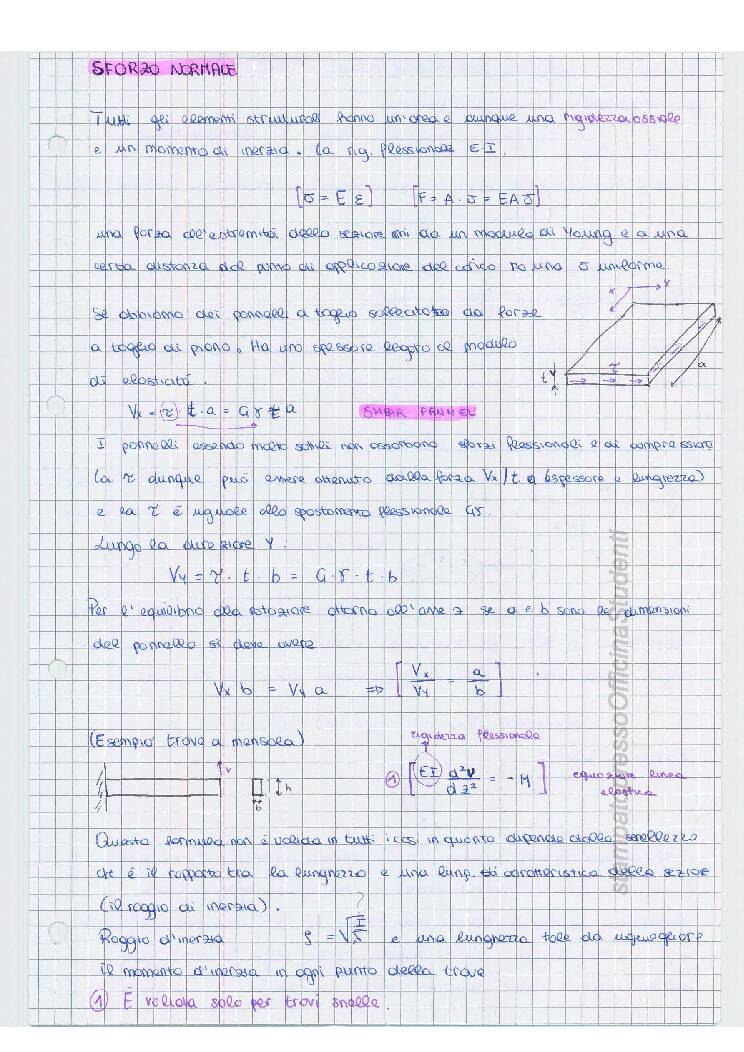 SFORZO NORMALE
Tutti gli elementi strutturali hanno un'area e dunque una rigidezza assiale
e un momento di inerzia. La rig. flessionale E·I.
[σ = E ε] [F = A · σ = EAσ]
una forza all'estremità della sezione mi da un modulo di Young e a una
certa distanza dal punto di applicazione del carico ho una σ uniforme.
x y
Se abbiamo dei pannelli a taglio sollecitato da forze
a taglio di piano. Ha uno spessore legato al modulo
di elasticità.
t τ a
Vx = τ · t · a = G γ t a SHEAR PANNEL
I pannelli essendo molto sottili non assorbono sforzi flessionali e di compressione
La τ dunque può essere ottenuto dalla forza Vx/t a (spessore e lunghezza)
e la τ è uguale allo spostamento flessionale Gγ.
Lungo la direzione Y:
Vy = τ · t · b = G · γ · t · b
Per l'equilibrio alla rotazione attorno all'asse z se a e b sono le dimensioni
del pannello si deve avere
Vx b = Vy a ⇒ [Vx/Vy = a/b]
(Esempio trave a mensola) rigidezza flessionale
v b h
① [EI d²v/dz² = -M] equazione linea
elastica
Questa formula non è valida in tutti i casi in quanto dipende dalla snellezza
che è il rapporto tra la lunghezza e una lung. di caratteristica della sezione
(il raggio di inerzia). ?
Raggio d'inerzia ρ = √I/A e una lunghezza tale da uguagliare
il momento d'inerzia in ogni punto della trave
① È valida solo per travi snelle.
stampatopressoOfficinaStudenti